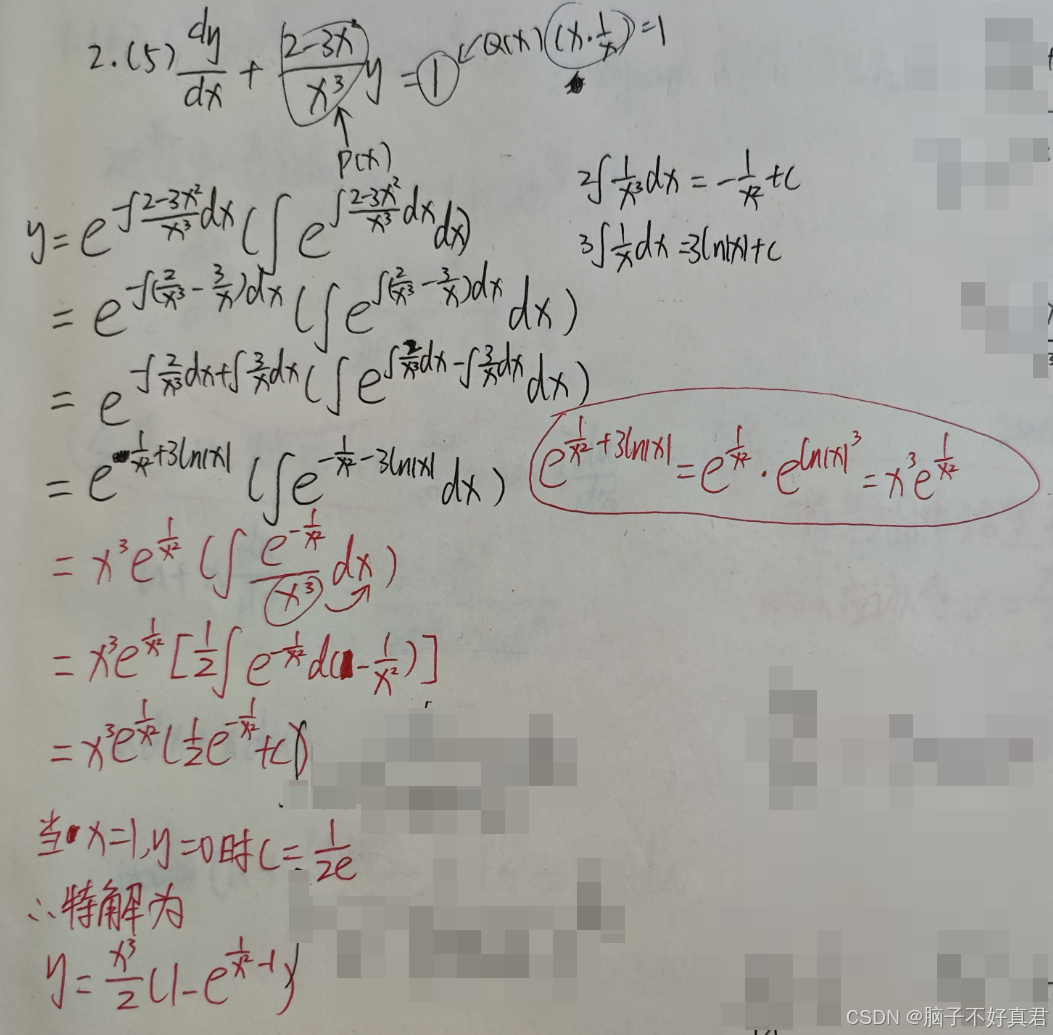 2.(5) dy/dx + (2-3x²)/x³ y = 1 ← Q(x) (x·1/x)=1
↑
P(x)
2∫1/x³dx = -1/x²+c
3∫1/x dx = 3ln|x|+c
y = e^(-∫(2-3x²)/x³ dx) (∫e^(∫(2-3x²)/x³ dx) dx)
= e^(-∫(2/x³ - 3/x)dx) (∫e^(∫(2/x³ - 3/x)dx) dx)
= e^(-∫2/x³dx+∫3/x dx) (∫e^(∫2/x³dx-∫3/x dx) dx)
= e^(1/x²+3ln|x|) (∫e^(-1/x²-3ln|x|) dx)
e^(1/x²+3ln|x|) = e^(1/x²)·e^(ln|x|³) = x³e^(1/x²)
= x³e^(1/x²) (∫e^(-1/x²)/x³ dx)
= x³e^(1/x²) [1/2∫e^(-1/x²) d(-1/x²)]
= x³e^(1/x²) (1/2 e^(-1/x²)+c)
当x=1,y=0时c=1/2e
∴特解为
y = x³/2 (1-e^(1/x²-1))
CSDN @脑子不好真君